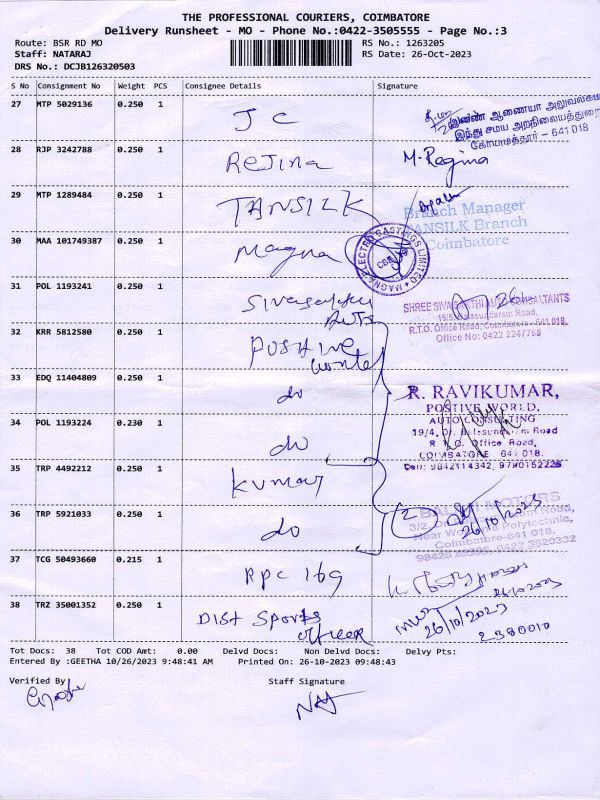 THE PROFESSIONAL COURIERS, COIMBATORE
Delivery Runsheet - MO - Phone No.:0422-3505555 - Page No.:3
Route: BSR RD MO
RS No.: 1263205
Staff: NATARAJ
RS Date: 26-Oct-2023
DRS No.: DCJB126320503
S No Consignment No Weight PCS Consignee Details Signature
27 MTP 5029136 0.250 1 J C
இணை ஆணையர் அலுவலகம்
இந்து சமய அறநிலையத்துறை
கோயமுத்தூர் - 641 018
28 RJP 3242788 0.250 1 Rejina M. Regina
29 MTP 1289484 0.250 1 TANSILK
Branch Manager
TANSILK Branch
Coimbatore
30 MAA 101749387 0.250 1 Magna
MAGNA ELECTRO CASTINGS LIMITED
CBE
31 POL 1193241 0.250 1 Sivasakthi
Auto
SHREE SIVASAKTHI AUTO CONSULTANTS
R.T.O. Office Road, Coimbatore - 641 018.
Office No: 0422 2247768
32 KRR 5812580 0.250 1 Positive
World
33 EDQ 11404809 0.250 1 do
R. RAVIKUMAR,
POSTIVE WORLD,
AUTO CONSULTING
19/4, Dr. Balasundaram Road
R.T.O. Office Road,
COIMBATORE 641 018.
Cell: 9842114342, 9790152225
34 POL 1193224 0.230 1 do
35 TRP 4492212 0.250 1 kumar
36 TRP 5921033 0.250 1 do
2
26/10/2023
MOTORS
Near Polytechnic,
Coimbatore-641 018.
37 TCG 50493660 0.215 1 Rpc 169
38 TRZ 35001352 0.250 1 Dist Sports
officer
26/10/2023
2380010
Tot Docs: 38 Tot COD Amt: 0.00 Delvd Docs: Non Delvd Docs: Delvy Pts:
Entered By :GEETHA 10/26/2023 9:48:41 AM Printed On: 26-10-2023 09:48:43
Verified By
Staff Signature